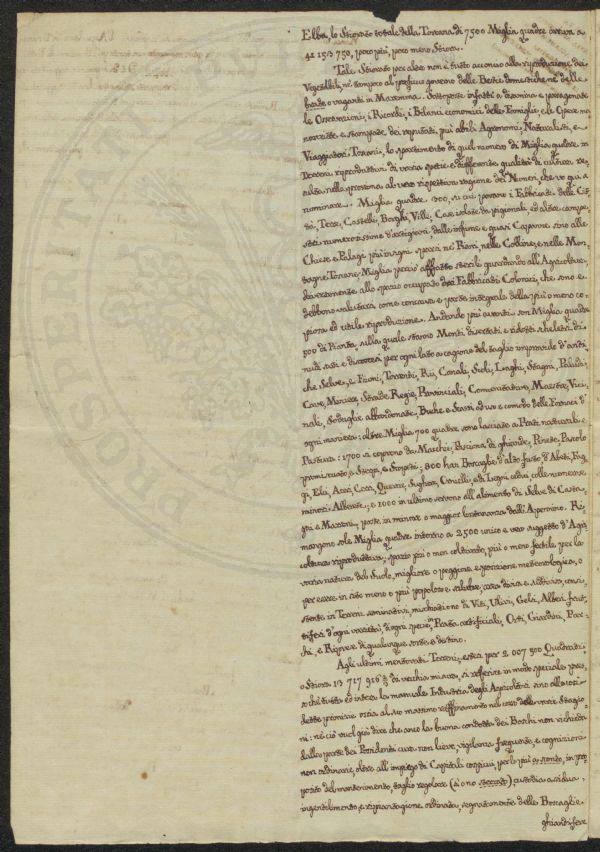 Elba, lo Stioroto totale della Toscana di 7500 Miglia quadre arriva a
41 153 750, poco più, poco meno Stiora.
Tale Stioroto per altro non è tutto acconcio alla riproduzione dei
Vegetabili, nè tampoco al proficuo governo delle Bestie domestiche nè delle
brade o vaganti in Maremma. Sottoposte infatti a disamina e paragonate
le Osservazioni, i Ricordi, i Bilanci economici delle Famiglie, e le Opere ma-
noscritte e stampate dei reputati più abili Agronomi, Naturalisti, e
Viaggiatori Toscani, lo spartimento di quel numero di Miglia quadre in
Terreni riproduttivi di varia specie e differente qualità di cultura re-
sulta, nella prossima al vero rispettiva ragione dei Numeri, che vo qui a
nominare. Miglia quadre 300, su cui posano i Fabbricati delle Cit-
tà, Terre, Castelli, Borghi, Ville, Case isolate da pigionali, ed altre campe-
stri numerosissime d'artigiani, dalle infime e quasi Capanne sino alle
Chiese e Palagi più insigni sparsi ne' Piani, nelle Colline, e nelle Mon-
tagne Toscane, Miglia perciò affatto sterili guardando all'Agricoltura,
diversamente allo spazio occupato dai Fabbricati Colonici, che sono e
debbono valutarsi come concausa e parte integrale della più o meno co-
piosa ed utile riproduzione. Andando più avanti son Miglia quadre
500 di Pianta, sulla quale stanno Monti diseredati e ridotti scheletri di
nudi sassi e discoscesi per ogni lato a cagione del taglio improvido d'anti-
che Selve, e Fiumi, Torrenti, Rii, Canali, Scoli, Laghi, Stagni, Paludi,
Cave, Miniere, Strade Regie, Provinciali, Comunitative, Maestre, Vici-
nali, Sodaglie abbandonate, Buche e Sterri ad uso e comodo delle Fornaci d'
ogni maniera: oltre Miglia 700 quadre sono lasciate a Prati naturali e
Pasture: 1700 si coprono da Macchie, Pasciona di ghiande, Pinete, Pascolo
promiscuato, e Scope, e Scopeti; 800 han Boscaglie d'alto fusto, d'Abeti, Fag-
gi, Elci, Aceri, Cerri, Querce, Sughere, Ornielli, ed i Legni cedui, colle numerose
minori Alberete; e 1000 in ultimo servono all'alimento di Selve di Casta-
gni e Marroni, poste in minore o maggior lontananza dall'Apennino. Ri-
mangono sole Miglia quadre intorno a 2500 unico e vero suggetto d'Agri-
coltura riproduttiva; spazio più o men coltivato, più o meno fertile per la
varia natura del Suolo, migliore o peggiore esposizione meteorologica, o
per essere in sito meno o più popoloso e salubre, cosa divisa e suddivisa, consi-
stente in Terreni seminativi, mischiatino di Viti, Ulivi, Gelsi, Alberi frut-
tiferi d'ogni varietà, d'ogni specie, in Prata artificiali, Orti, Giardini, Par-
chi, e Riprese di qualunque sorte e destino.
Agli ultimi mentovati Terreni, estesi per 2 007 500 Quadrati,
o Stiora 13 717 916 ⅔ di vecchia misura, si referisce in modo speciale pres-
so che tutta ed intera la manuale Industria degli Agricoltori sino alla così-
detta primizie ossia al suo massimo raffinamento nel corso delle varie Stagio-
ni: nè ciò vuol già dire che anco la buona condotta dei Boschi non richieda
dalla parte dei Possidenti cura non lieve, vigilanza frequente, e cognizioni
non ordinarie, oltre all'impiego di Capitali cospicui, per lo più a stento, in pro-
posito del mantenimento, taglio regolare (si o no sterzato), custodia assidua,
ingentilimento, e ripiantagione ordinata, segnatamente delle Boscaglie
ghiandifere